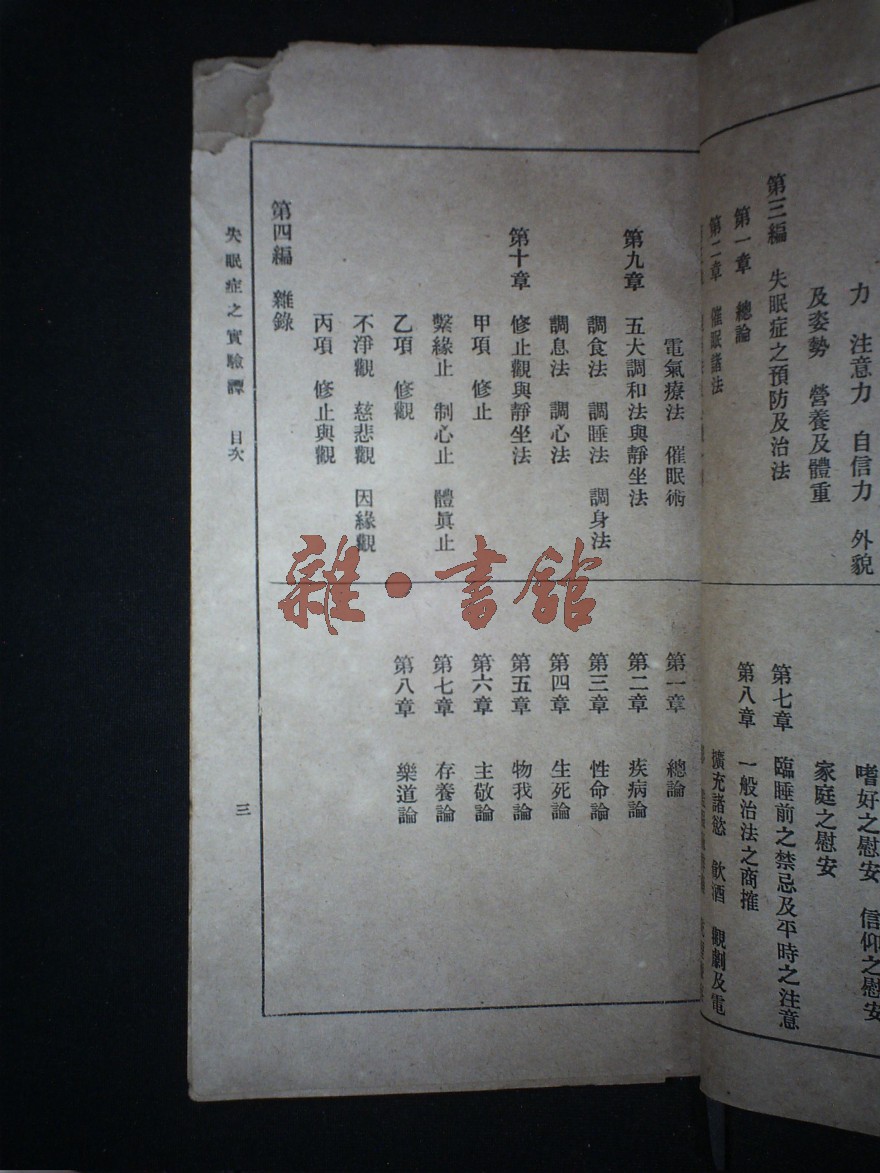 力　注意力　自信力　外貌
及姿勢　營養及體重
第三編　失眠症之預防及治法
第一章　總論
第二章　催眠諸法
嗜好之慰安　信仰之慰安
家庭之慰安
第七章　臨睡前之禁忌及平時之注意
第八章　一般治法之商搉
擴充諸慾　飲酒　觀劇及電
電氣療法　催眠術
第九章　五大調和法與靜坐法
調食法　調睡法　調身法
調息法　調心法
第十章　修止觀與靜坐法
甲項　修止
繫緣止　制心止　體眞止
乙項　修觀
不淨觀　慈悲觀　因緣觀
丙項　修止與觀
第四編　雜錄
第一章　總論
第二章　疾病論
第三章　性命論
第四章　生死論
第五章　物我論
第六章　主敬論
第七章　存養論
第八章　樂道論
失眠症之實驗譚　目次
三
雜·書館